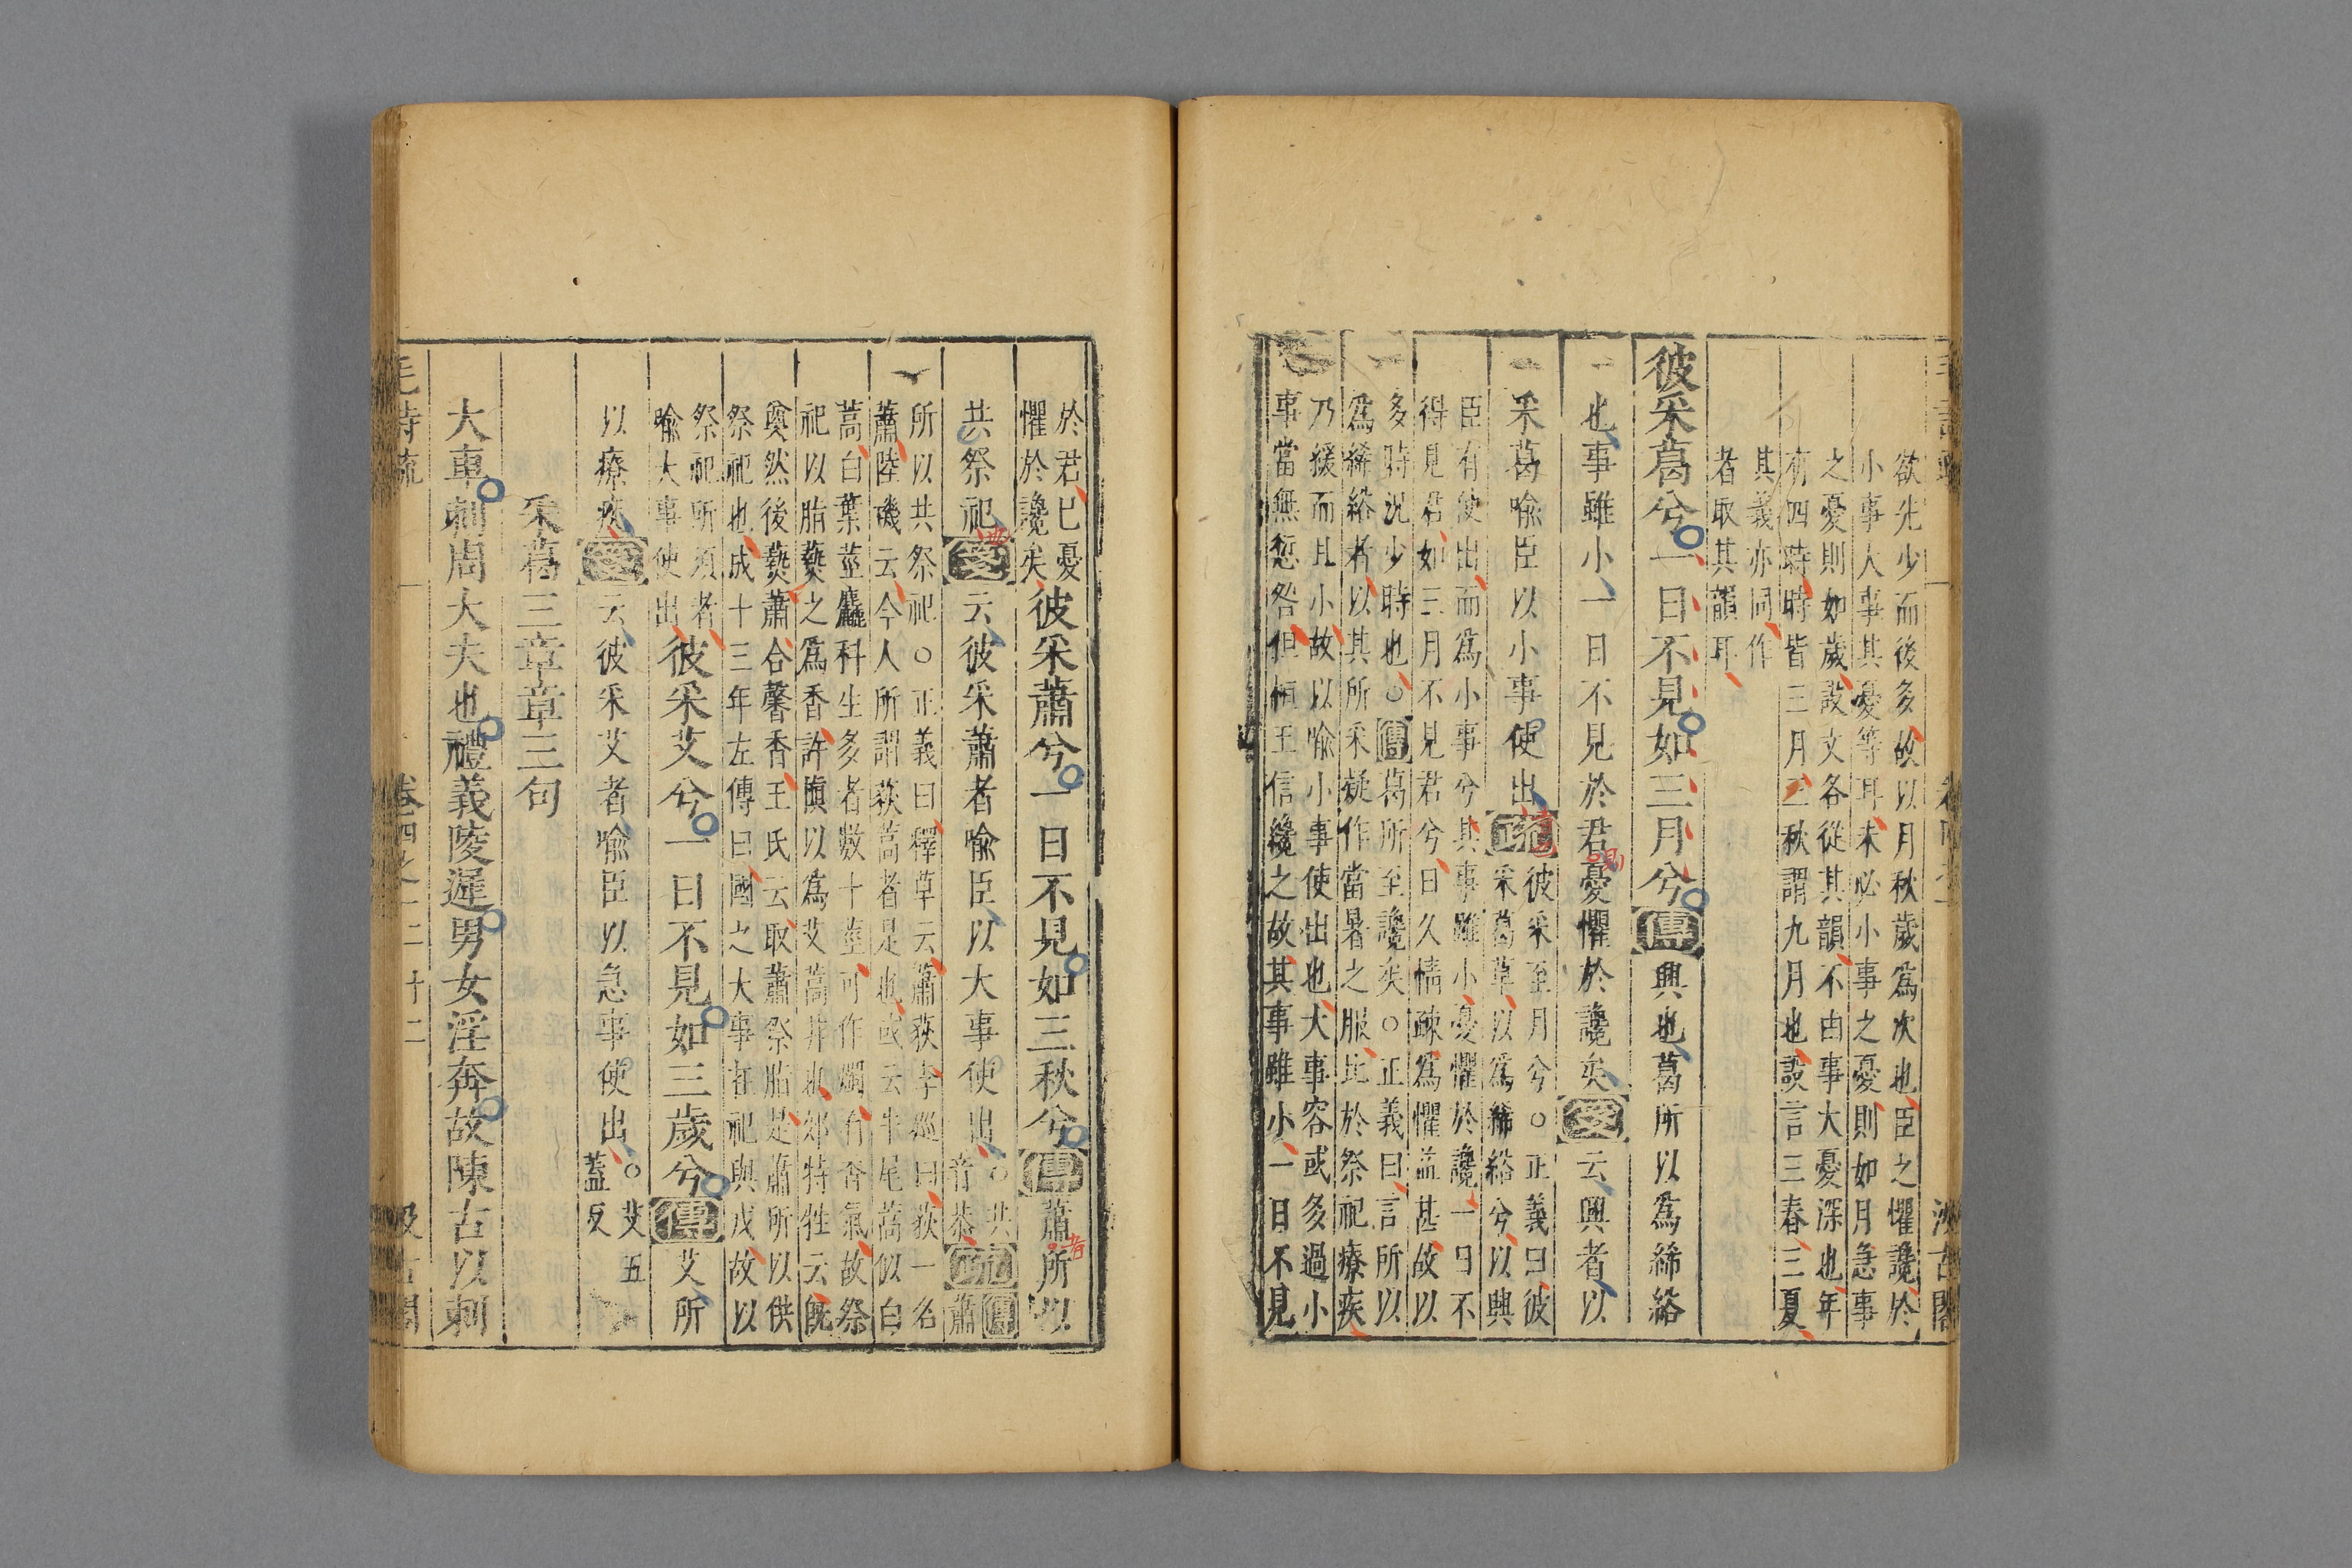 欲先少而後多故以月秋歲爲次也臣之懼讒於
小事人事其憂等耳未必小事之憂則如月急事
之憂則如歲設文各從其韻不由事大憂深也年
有四時時皆三月三秋謂九月也設言三春三夏
其義亦同作
者取其韻耳
彼采葛兮一日不見如三月兮傳興也葛所以爲絺綌
也事雖小一日不見於君憂懼於讒矣箋云興者以
采葛喻臣以小事使出疏
彼采至月兮○正義曰彼
采葛草以爲絺綌兮以興
臣有使出而爲小事兮其事雖小憂懼於讒一日不
得見君如三月不見君兮日久情疎爲懼益甚故以
多時況少時也○傳葛所至讒矣○正義曰言所以
爲絺綌者以其所采疑作當暑之服比於祭祀療疾
乃緩而且小故以喻小事使出也大事容或多過小
事當無愆咎但桓王信讒之故其事雖小一日不見
於君已憂
懼於讒矣
彼采蕭兮一日不見如三秋兮傳蕭所以
共祭祀箋云彼采蕭者喻臣以大事使出
○共
音恭
疏
傳
蕭
所以共祭祀○正義曰釋草云蕭荻李巡曰荻一名
蕭陸磯云今人所謂荻蒿者是也或云牛尾蒿似白
蒿白葉莖麤科生多者數十莖可作燭有香氣故祭
祀以脂爇之爲香許愼以爲艾蒿非也郊特牲云旣
奠然後爇蕭合馨香王氏云取蕭祭脂是蕭所以供
祭祀也成十三年左傳曰國之大事在祀與戎故以
祭祀所須者
喻大事使出
彼采艾兮一日不見如三歲兮傳艾所
以療疾箋云彼采艾者喻臣以急事使出
○艾五
蓋反
采葛三章章三句
大車刺周大夫也禮義陵遲男女淫奔故陳古以刺
卷四之一
二十二